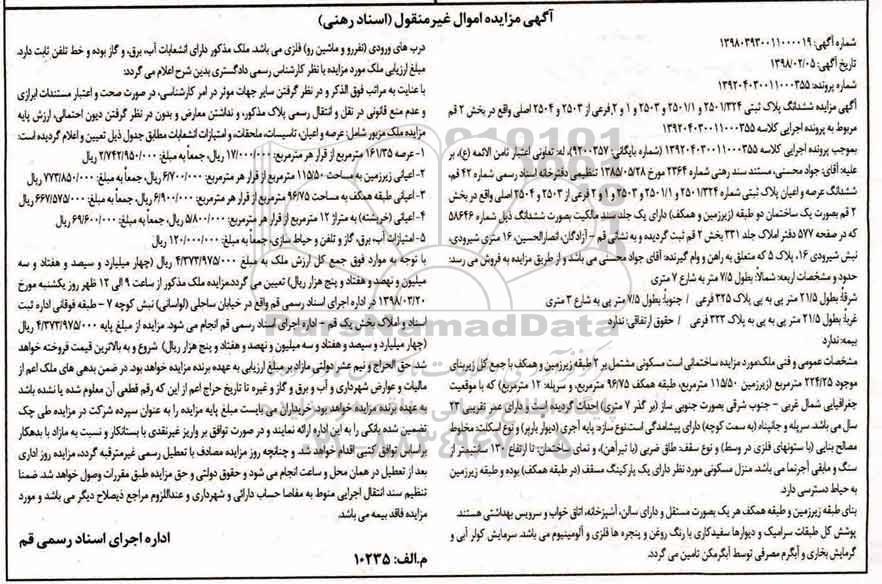 آگهی مزایده اموال غیرمنقول (اسناد رهنی)
شماره آگهی: ۱۳۹۸۰۳۹۳۰۰۱۱۰۰۰۰۱۹
تاریخ آگهی: ۱۳۹۸/۰۲/۰۵
شماره پرونده: ۱۳۹۲۰۴۰۳۰۰۱۱۰۰۰۳۵۵
آگهی مزایده ششدانگ پلاک ثبتی ۲۵۰۱/۳۲۴ و ۲۵۰۱/۱ و ۲۵۰۳ و ۱ و ۲,فرعی از ۲۵۰۳ و ۲۵۰۴ اصلی واقع در بخش ۲ قم
مربوط به پرونده اجرایی کلاسه ۱۳۹۲۰۴۰۳۰۰۱۱۰۰۰۳۵۵
بموجب پرونده اجرایی کلاسه ۱۳۹۲۰۴۰۳۰۰۱۱۰۰۰۳۵۵ (شماره بایگانی: ۹۲۰۰۳۵۷)، له: تعاونی اعتبار ثامن الائمه (ع)، بر
علیه: آقای: جواد محسنی، مستند سند رهنی شماره ۲۳۶۴ مورخ ۱۳۸۵/۰۵/۲۸ تنظیمی دفترخانه اسناد رسمی شماره ۴۲ قم،
ششدانگ عرصه و اعیان پلاک ثبتی شماره ۲۵۰۱/۳۲۴ و ۲۵۰۱/۱ و ۲۵۰۳ و ۱ و ۲ فرعی از ۲۵۰۳ و ۲۵۰۴ اصلی واقع در بخش
۲ قم بصورت یک ساختمان دو طبقه (زیرزمین و همکف) دارای یک جلد سند مالکیت بصورت ششدانگ ذیل شماره ۵۸۶۴۶
که در صفحه ۵۷۷ دفتر املاک جلد ۳۳۱ بخش ۲ قم ثبت گردیده و به نشانی قم - آزادگان، انصارالحسین، ۱۶ متری شیرودی،
نبش شیرودی ۱۶، پلاک ۵ که متعلق به راهن و وام گیرنده: آقای جواد محسنی می باشد و از طریق مزایده به فروش می رسد:
حدود و مشخصات اربعه: شمالاً: بطول ۷/۵ متر به شارع ۷ متری
شرقاً: بطول ۲۱/۵ متر پی به پی پلاک ۳۲۵ فرعی / جنوباً: بطول ۷/۵ متر پی به شارع ۳ متری
غرباً: بطول ۲۱/۵ متر پی به پی به پلاک ۳۲۳ فرعی / حقوق ارتفاقی: ندارد
بیمه: ندارد
مشخصات عمومی و فنی ملک:مورد مزایده ساختمانی است مسکونی مشتمل بر ۲ طبقه زیرزمین و همکف با جمع کل زیربنای
موجود ۲۲۴/۲۵ مترمربع (زیرزمین ۱۱۵/۵۰ مترمربع، طبقه همکف ۹۶/۷۵ مترمربع، و سرپله: ۱۲ مترمربع) که با موقعیت
جغرافیایی شمال غربی - جنوب شرقی بصورت جنوبی ساز (بر گذر ۷ متری) احداث گردیده است و دارای عمر تقریبی ۲۳
سال می باشد. سرپله و جانپناه (به سمت کوچه) دارای پیشامدگی است:نوع سازه: پایه آجری (دیوار باربر) و نوع اسکلت: مخلوط
مصالح بنایی (با ستونهای فلزی در وسط) و نوع سقف: طاق ضربی (با تیرآهن)، و نمای ساختمان: تا ارتفاع ۱۲۰ سانتیمتر از
سنگ و مابقی آجرنما می باشد. منزل مسکونی مورد نظر دارای یک پارکینگ مسقف (در طبقه همکف) بوده و طبقه زیرزمین
به حیاط دسترسی دارد.
بنای طبقه زیرزمین و طبقه همکف هر یک بصورت مستقل و دارای سالن، آشپزخانه، اتاق خواب و سرویس بهداشتی هستند.
پوشش کل طبقات سرامیک و دیوارها سفیدکاری با رنگ روغن و پنجره ها فلزی و آلومینیوم می باشد. سرمایش کولر آبی و
گرمایش بخاری و آبگرم مصرفی توسط آبگرمکن تامین می گردد.
درب های ورودی (نفررو و ماشین رو) فلزی می باشد. ملک مذکور دارای انشعابات آب، برق، و گاز بوده و خط تلفن ثابت دارد.
مبلغ ارزیابی ملک مورد مزایده با نظر کارشناس رسمی دادگستری بدین شرح اعلام می گردد:
با عنایت به مراتب فوق الذکر و در نظر گرفتن سایر جهات موثر در امر کارشناسی، در صورت صحت و اعتبار مستندات ابرازی
و عدم منع قانونی در نقل و انتقال رسمی پلاک مذکور، و نداشتن معارض و بدون در نظر گرفتن دیون احتمالی، ارزش پایه
مزایده ملک مزبور شامل: عرصه و اعیان، تاسیسات، ملحقات، و امتیازات انشعابات مطابق جدول ذیل تعیین و اعلام گردیده است:
۱- عرصه ۱۶۱/۳۵ مترمربع از قرار هر مترمربع: ۱۷/۰۰۰/۰۰۰ ریال، جمعاً به مبلغ: ۲/۷۴۲/۹۵۰/۰۰۰ ریال
۲- اعیانی زیرزمین به مساحت ۱۱۵/۵۰ مترمربع از قرار هر مترمربع: ۶/۷۰۰/۰۰۰ ریال، جمعاً به مبلغ: ۷۷۳/۸۵۰/۰۰۰ ریال
۳- اعیانی طبقه همکف به مساحت ۹۶/۷۵ مترمربع از قرار هر مترمربع: ۶/۹۰۰/۰۰۰ ریال، جمعاً به مبلغ: ۶۶۷/۵۷۵/۰۰۰ ریال
۴- اعیانی (خرپشته) به متراژ ۱۲ مترمربع از قرار هر مترمربع: ۵/۸۰۰/۰۰۰ ریال، جمعاً به مبلغ: ۶۹/۶۰۰/۰۰۰ ریال
۵- امتیازات آب، برق، گاز و تلفن و حیاط سازی، جمعاً به مبلغ: ۱۲۰/۰۰۰/۰۰۰ ریال
با توجه به موارد فوق جمع کل ارزش ملک به مبلغ ۴/۳۷۳/۹۷۵/۰۰۰ ریال (چهار میلیارد و سیصد و هفتاد و سه
میلیون و نهصد و هفتاد و پنج هزار ریال) تعیین می گردد.مزایده ملک مذکور از ساعت ۹ الی ۱۲ ظهر روز یکشنبه مورخ
۱۳۹۸/۰۳/۲۰ در اداره اجرای اسناد رسمی قم واقع در خیابان ساحلی (لواسانی) نبش کوچه ۷ - طبقه فوقانی اداره ثبت
اسناد و املاک بخش یک قم - اداره اجرای اسناد رسمی قم انجام می شود. مزایده از مبلغ پایه ۴/۳۷۳/۹۷۵/۰۰۰ ریال
(چهار میلیارد و سیصد و هفتاد و سه میلیون و نهصد و هفتاد و پنج هزار ریال) شروع و به بالاترین قیمت فروخته خواهد
شد. حق الحراج و نیم عشر دولتی مازاد بر مبلغ ارزیابی به عهده برنده مزایده خواهد بود. در ضمن بدهی های ملک اعم از
مالیات و عوارض شهرداری و آب و برق و گاز و غیره تا تاریخ حراج اعم از این که رقم قطعی آن معلوم شده یا نشده باشد
به عهده برنده مزایده خواهد بود. خریداران می بایست مبلغ پایه مزایده را به عنوان سپرده شرکت در مزایده طی چک
تضمین شده بانکی را به این اداره ارائه نمایند و در صورت توافق بر واریز غیرنقدی با بستانکار و نسبت به مازاد با بدهکار
براساس توافق کتبی اقدام خواهد شد. و چنانچه روز مزایده مصادف با تعطیل رسمی غیرمترقبه گردد، مزایده روز اداری
بعد از تعطیل در همان محل و ساعت انجام می شود و حقوق دولتی و حق مزایده طبق مقررات وصول خواهد شد. ضمنا
تنظیم سند انتقال اجرایی منوط به مفاصا حساب دارائی و شهرداری و عنداللزوم مراجع ذیصلاح دیگر می باشد و مورد
مزایده فاقد بیمه می باشد.
اداره اجرای اسناد رسمی قم
م.الف: ۱۰۲۳۵
ParsNamadData
۰۲۱-۸۸۳۴۹۶۷۰-۵